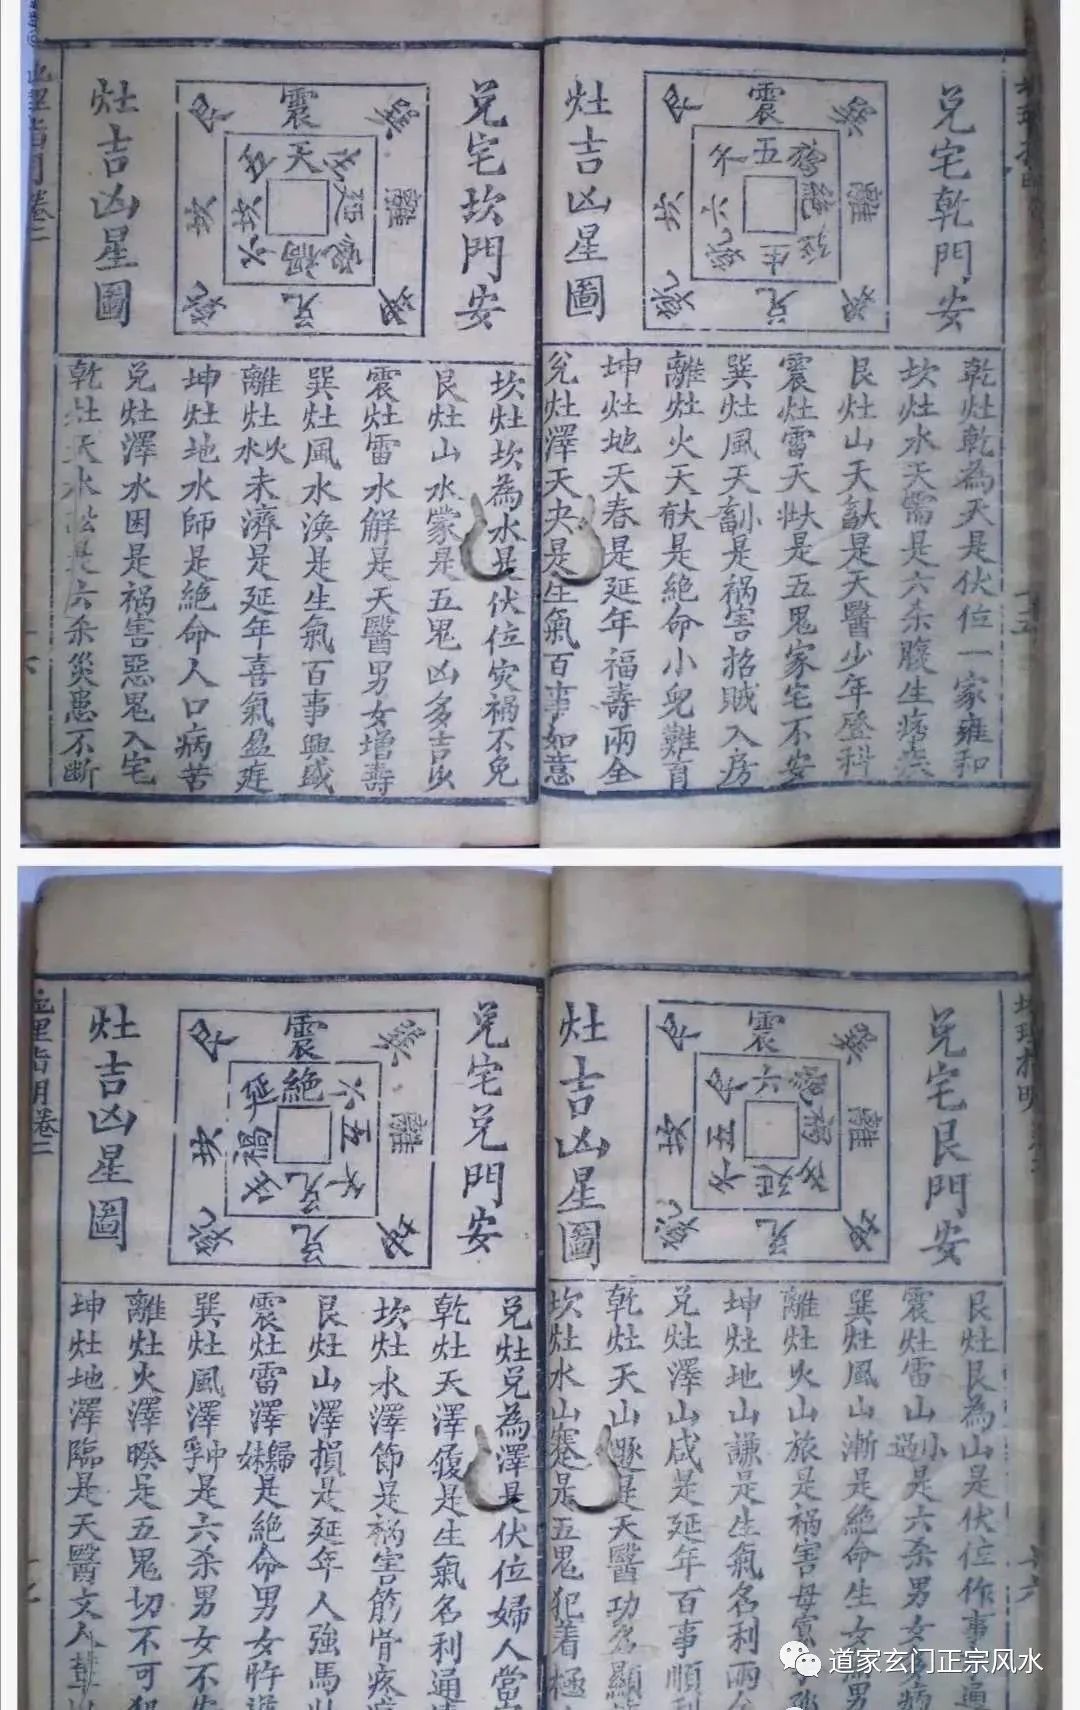 兌宅乾門安
灶吉凶星圖
巽
震
艮
離
坎
坤
兌
乾
五
六
生
絕
乾灶乾為天是伏位一家雍和
坎灶水天需是六杀腹生痞疾
艮灶山天大畜是天醫少年登科
震灶雷天大壯是五鬼家宅不安
巽灶風天小畜是禍害招賊入房
離灶火天大有是絕命小兒難育
坤灶地天春是延年福壽兩全
兌灶澤天夬是生氣百事如意
兌宅坎門安
灶吉凶星圖
巽
震
艮
離
坎
坤
兌
乾
天
延
禍
坎灶坎為水是伏位灾禍不免
艮灶山水蒙是五鬼凶多吉少
震灶雷水解是天醫男女增壽
巽灶風水渙是生氣百事興盛
離灶火水未濟是延年喜氣盈庭
坤灶地水師是絕命人口病苦
兌灶澤水困是禍害惡鬼入宅
乾灶天水訟是六杀災患不斷
地理指明卷二
兌宅艮門安
灶吉凶星圖
巽
震
艮
離
坎
坤
兌
乾
六
禍
五
延
艮灶艮為山是伏位作事通
震灶雷山小過是六杀男女多病
巽灶風山漸是絕命生女
離灶火山旅是禍害母
坤灶地山謙是生氣名利兩
兌灶澤山咸是延年百事順利
乾灶天山遯是天醫功名顯
坎灶水山蹇是五鬼犯着極
兌宅兌門安
灶吉凶星圖
巽
震
艮
離
坎
坤
兌
乾
絕
六
延
五
禍
兌灶兌為澤是伏位婦人當
乾灶天澤履是生氣名利通
坎灶水澤節是禍害筋骨疼
艮灶山澤損是延年人強馬壯
震灶雷澤歸妹是絕命男女
巽灶風澤中孚是六杀男女不安
離灶火澤睽是五鬼切不可犯
坤灶地澤臨是天醫文人
地理指明卷二
道家玄门正宗风水